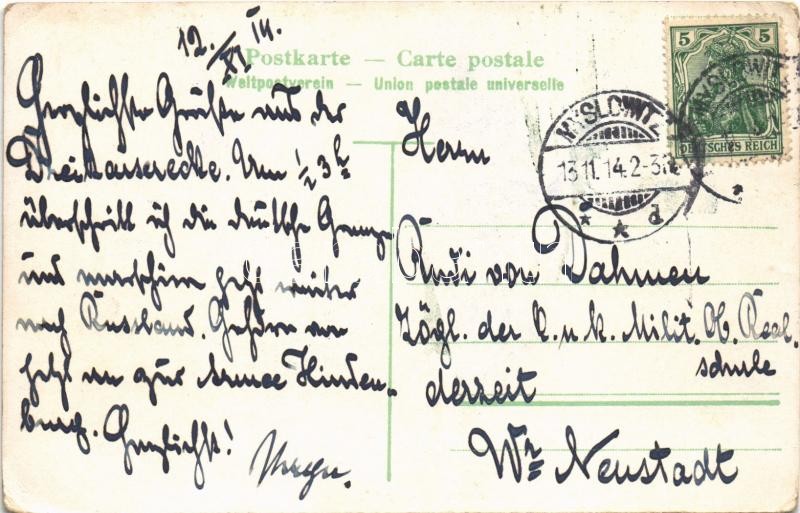 12./XI 14.
Postkarte — Carte postale
Weltpostverein — Union postale universelle
Herzlichste Grüße aus der
Dreikaiserecke. Um ½ 3 h
überschritt ich die deutsche Grenze
und marschiere jetzt weiter
nach Russland. Gehöre von
jetzt an zur Armee Hinden-
burg. Herzlichst!
Herrn
Rudi von Dahmen
Zögl. der k. u. k. Milit. Ob. Real
schule
derzeit
Wr. Neustadt
MYSLOWITZ
13.11.14.2-3N.
d
5 5
DEUTSCHES REICH
MYSLOWITZ